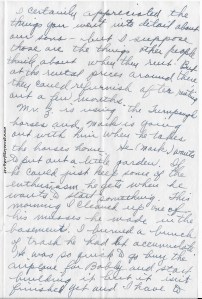 I certainly appreciated the
things you went into detail about
our sons - but I suppose
those are the things other people
think about when they rent. But
at the rental prices around there
they could refurnish after renting
out a few months.
Mr. Z. is moving the Jumping
horses and Mark is goin
out with him when he takes
the horses home. He (Mark) wants
to put out a little garden. If
he could just keep some of the
enthusiasm he gets when he
wants to start something. This
morning I cleaned up one of
his messes he made in the
basement. I burned a bunch
of trash he had let accumulate
He was so to go buy the
airplane for Bobby and start
building it but it isn't
finished yet and I have to